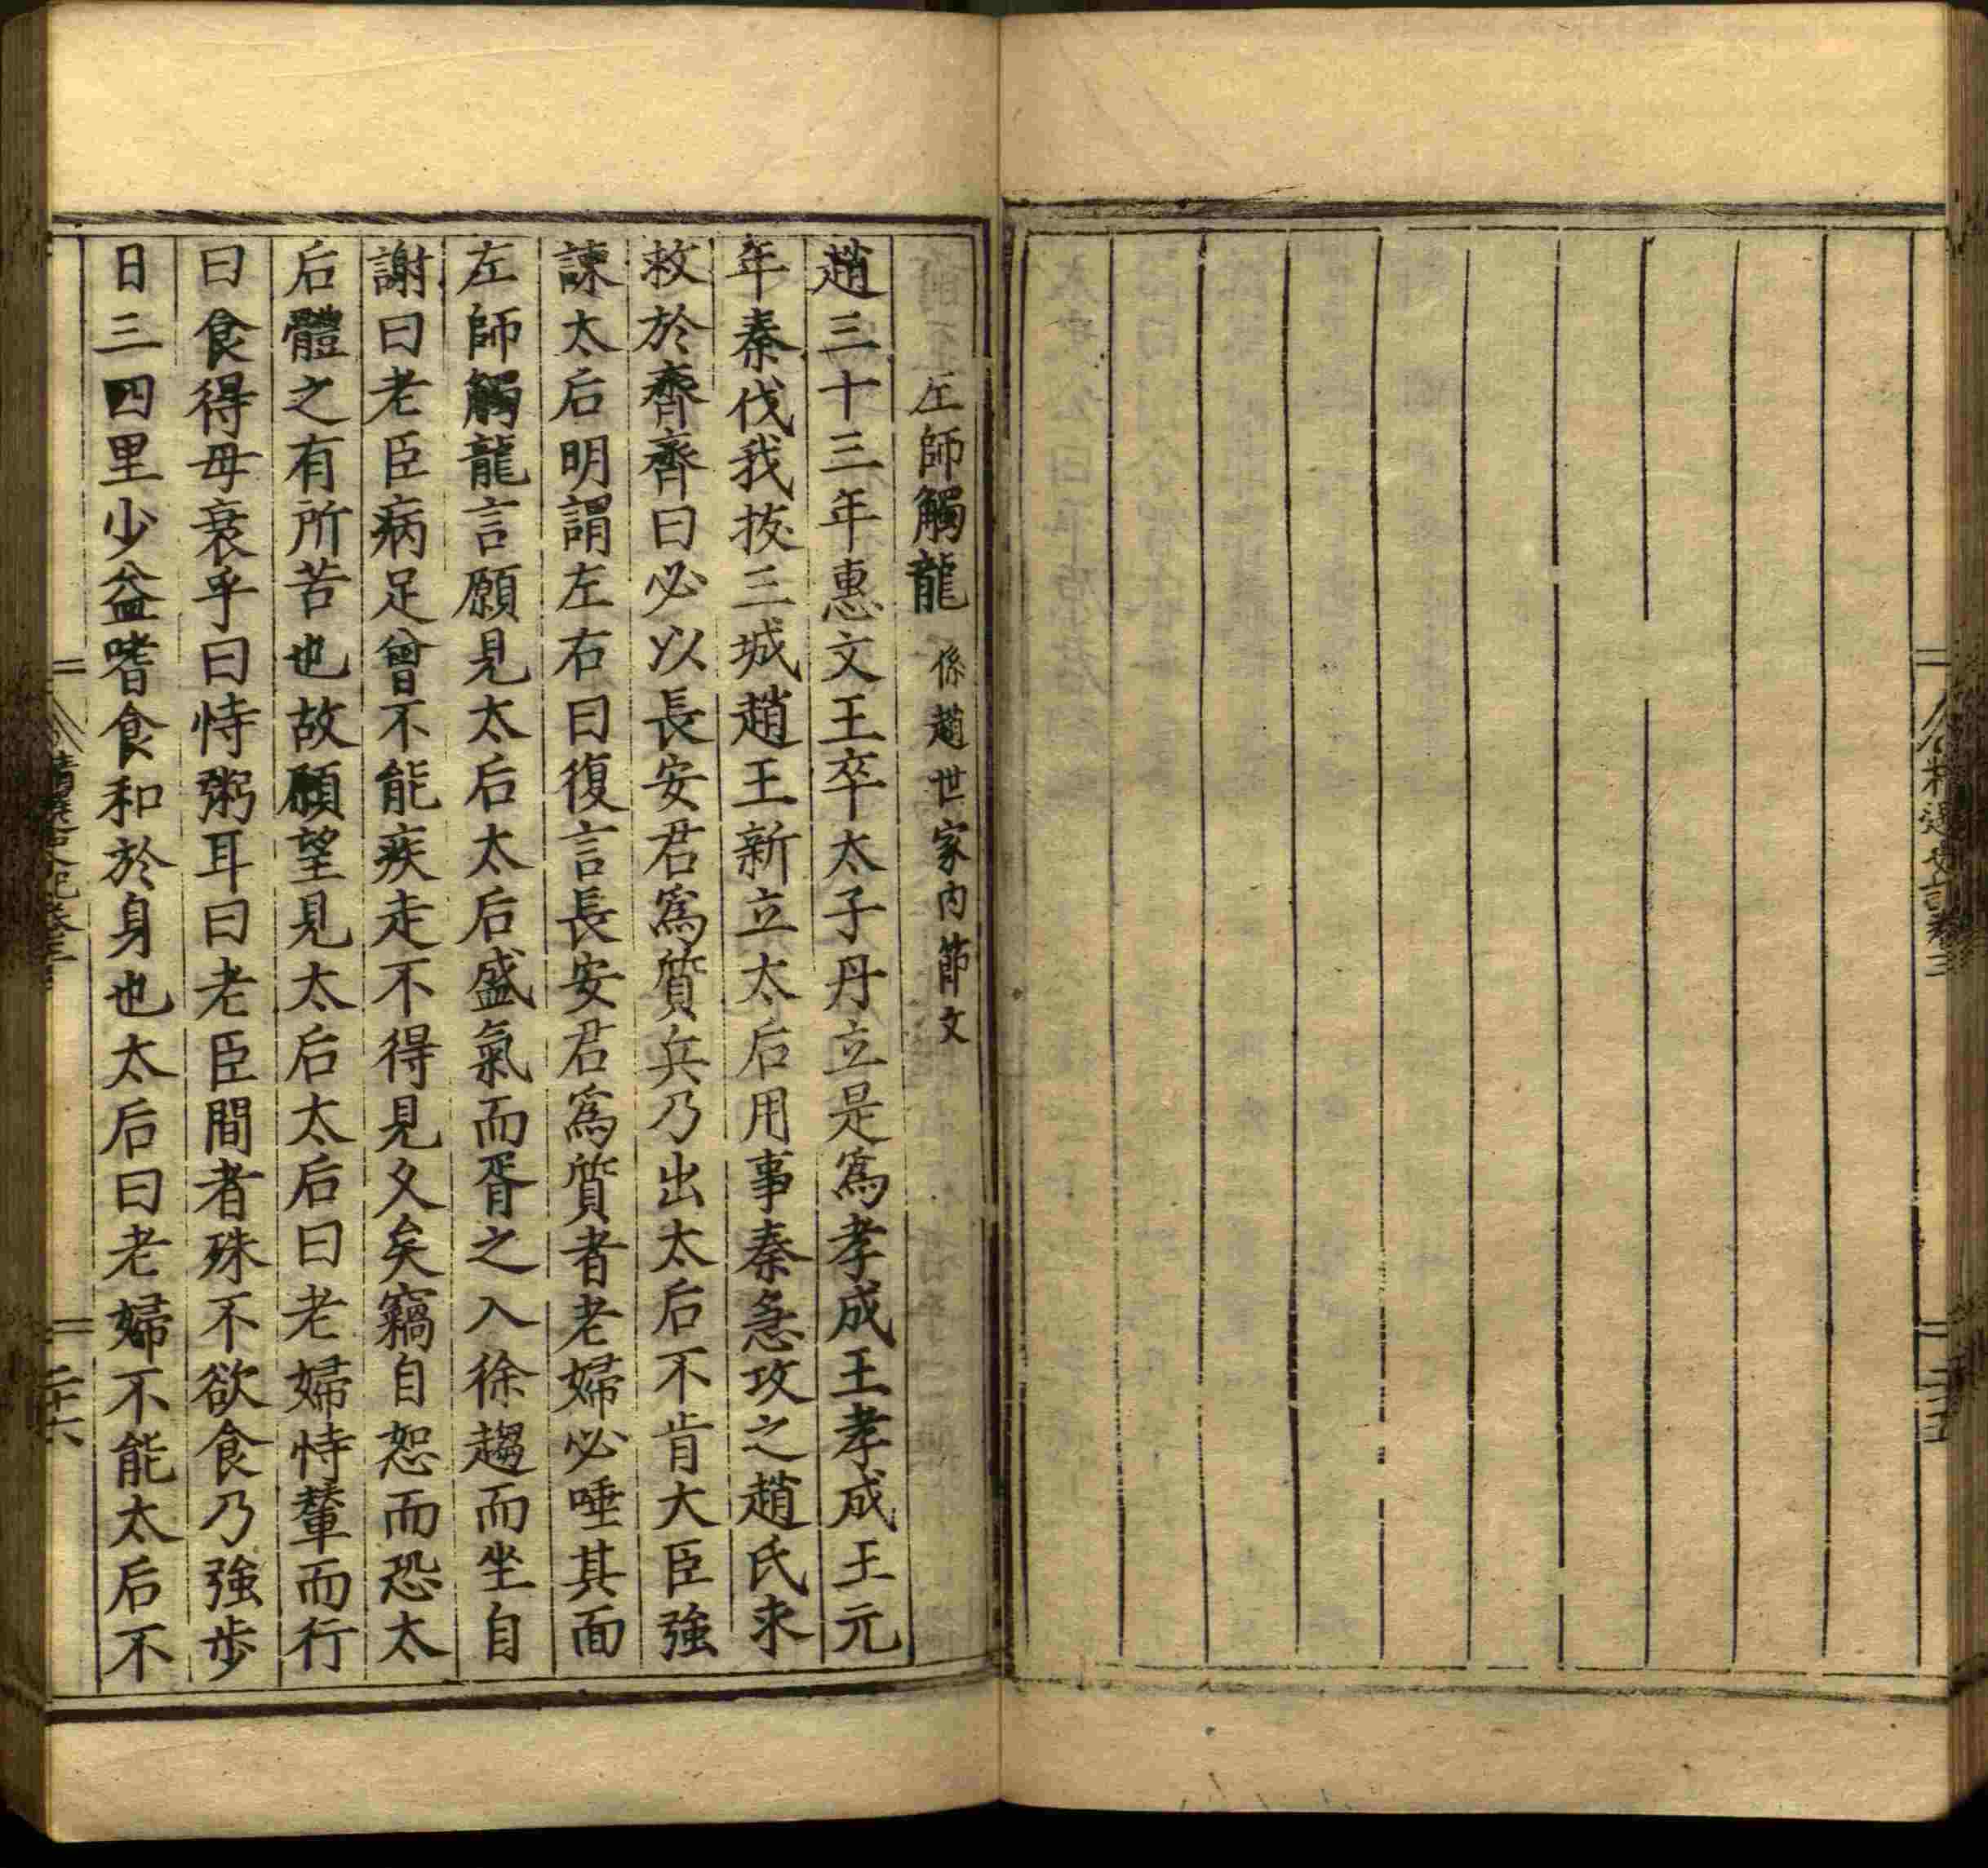 史記卷三
二十五
左師觸龍 係趙世家內節文
趙三十三年惠文王卒太子丹立是爲孝成王孝成王元
年秦伐我拔三城趙王新立太后用事秦急攻之趙氏求
救於齊齊曰必以長安君爲質兵乃出太后不肯大臣強
諫太后明謂左右曰復言長安君爲質者老婦必唾其面
左師觸龍言願見太后太后盛氣而胥之入徐趨而坐自
謝曰老臣病足曾不能疾走不得見久矣竊自恕而恐太
后體之有所苦也故願望見太后太后曰老婦恃輦而行
曰食得毋衰乎曰恃粥耳曰老臣間者殊不欲食乃強步
日三四里少益嗜食和於身也太后曰老婦不能太后不
二十六